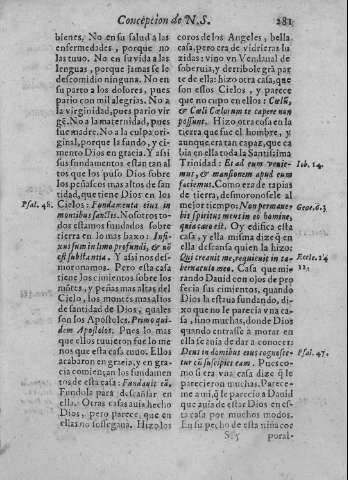 Concepcion de N.S. 281
bienes. No en su salud a las
enfermedades, porque no
las tuuo. No en su vida a las
lenguas, porque jamas se le
descomidio ninguna. No en
su parto a los dolores, pues
pario con mil alegrias. No a
la virginidad, pues pario vir
gē. No a la maternidad, pues
fue madre. No a la culpa ori-
ginal, porque la fundò, y ci-
mento Dios en gracia. Y assi
sus fundamentos estan tan al
tos que los puso Dios sobre
los peñascos mas altos de san
tidad, que tiene Dios en los
Psal. 48.
Cielos: Fundamenta eius in
montibus sanctis. Nosotros to-
dos estamos fundados sobre
tierra en lo mas baxo: Infi-
xus sum in limo profundi, & nō
est substantia. Y assi nos des-
moronamos. Pero esta casa
tiene los cimientos sobre los
mōtes, y peñas mas altas del
Cielo, los montes mas altos
de santidad de Dios, quales
son los Apostoles. Primo qui-
dem Apostolos. Pues lo mas
que ellos tuuieron fue lo me
nos que esta casa tuuo. Ellos
acabaron en gracia, y en gra-
cia comiençan los fundamen
tos de esta casa: Fundauit eā.
Fundola para descansar en
ella. Otras casas auia hecho
Dios, pero parece que en
ellas no sossegaua. Hizo los
coros de los Angeles, bella
casa, pero era de vidrieras lu
zidas: vino vn Vendaual de
soberuia, y derribole grā par
te de ella: hizo otra casa, que
son essos Cielos, y parece
que no cupo en ellos: Cœlū,
& Cœli Cœlorum te capere non
possunt. Hizo otra cosa en la
tierra que fue el hombre, y
aunque era tan capaz, que ca
bia en ella toda la Santissima
Trinidad: Et ad eum venie-
Ioh. 14.
mus, & mansionem apud eum
faciemus. Como era de tapias
de tierra, desmoronosele al
mejor tiempo: Non permane-
Gene. 6. 3
bis spiritus meus in eo homine,
quia caro est. Oy edifica esta
casa, y ella misma dize q̄ en
ella descansa quien la hizo:
Qui creauit me, requieuit in ta-
Eccle. 24
bernaculo meo. Casa que mi-
12.
rando Dauid con ojos de pro
fecia sus cimientos, quando
Dios la estaua fundando, di-
xo que no le parecia vna ca-
sa, sino muchas, donde Dios
quando entrasse a morar en
ella se auia de dar a conocer:
Deus in domibus eius cognosce-
Psal. 47.
tur cū suscipiet eam. Pues co-
mo si era vna casa dize q̄ le
parecieron muchas. Parece-
me a mi, q̄ le parecio a Dauid
que auia de estar Dios en es-
ta casa por muchos modos.
En su pecho de esta niña cor
poral-